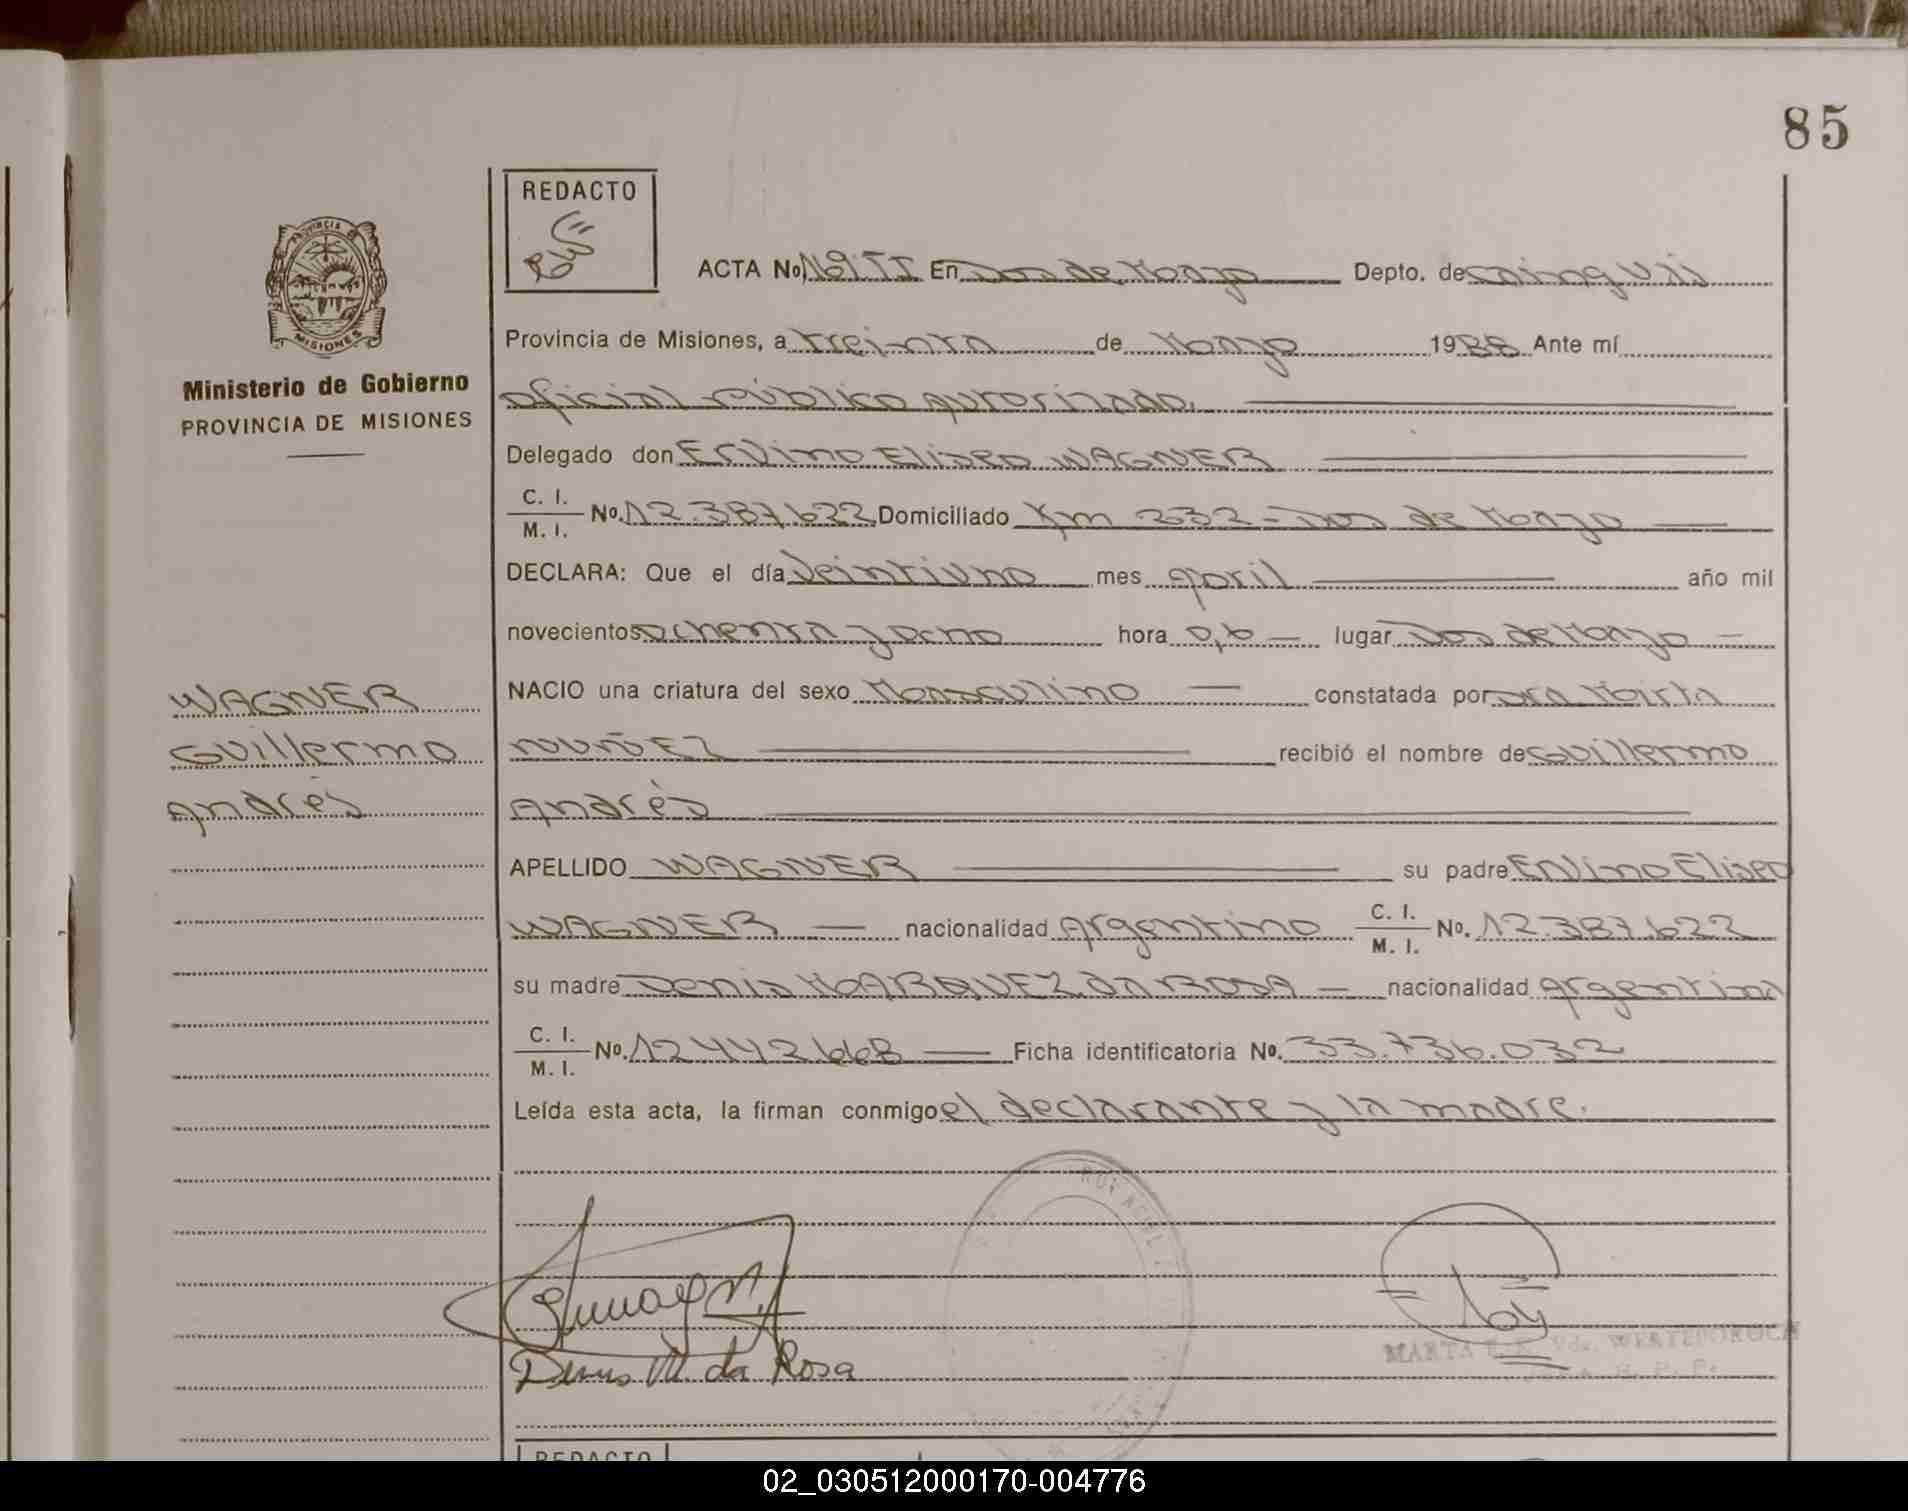 85
REDACTO
PROVINCIA DE
MISIONES
ACTA No. 169 TI En Dos de Mayo Depto. de Cainguás
Provincia de Misiones, a treinta de Mayo 1988 Ante mí
Ministerio de Gobierno
PROVINCIA DE MISIONES
oficial público autorizado.
Delegado don Ervino Eliseo WAGNER
C. I.
M. I. No. 12.387.622 Domiciliado Km 232 - Dos de Mayo
DECLARA: Que el día Veintiuno mes april año mil
novecientos ochenta y ocho hora 0,6 lugar Dos de Mayo
WAGNER
Guillermo
Andrés
NACIO una criatura del sexo Masculino constatada por Dra Mirta
NUÑEZ recibió el nombre de Guillermo
Andrés
APELLIDO WAGNER su padre Ervino Eliseo
WAGNER nacionalidad Argentino C. I.
M. I. No. 12.387.622
su madre Denis MARQUEZ da ROSA nacionalidad argentina
C. I.
M. I. No. 12442668 Ficha identificatoria No. 33.736.032
Leída esta acta, la firman conmigo el declarante y la madre.
Denis M. da Rosa
MARTA Vda.
REDACTO
02_030512000170-004776